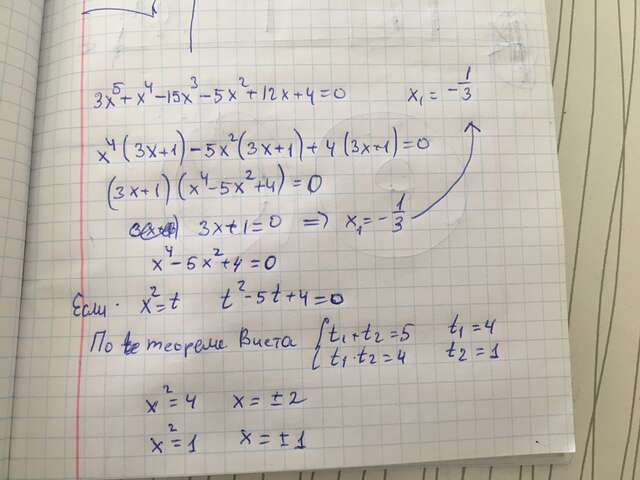 3x⁵+x⁴-15x³-5x²+12x+4=0 x₁=-1/3
x⁴(3x+1)-5x²(3x+1)+4(3x+1)=0
(3x+1)(x⁴-5x²+4)=0
3x+1=0 => x₁=-1/3
x⁴-5x²+4=0
Если: x²=t t²-5t+4=0
По теореме Виета { t₁+t₂=5 t₁=4
t₁·t₂=4 t₂=1
x²=4 x=±2
x²=1 x=±1